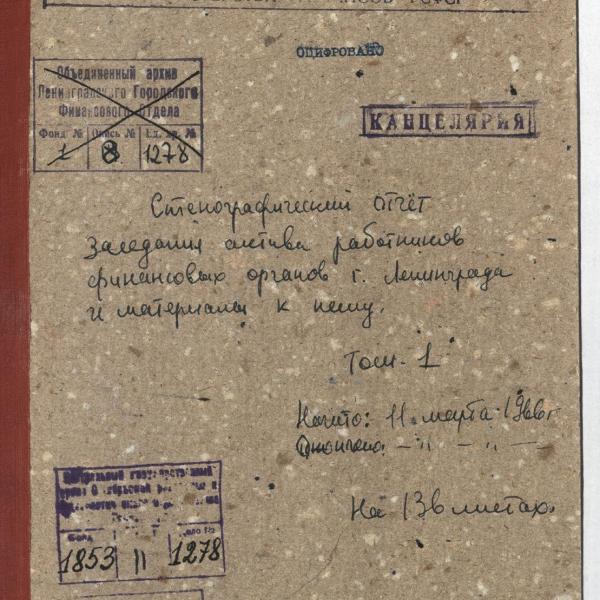 ОЦИФРОВАНО
Объединенный архив
Ленинградского Городского
Финансового Отдела
Фонд № Опись № Ед. хр. №
1 8 1278
КАНЦЕЛЯРИЯ
Стенографический отчёт
заседания актива работников
финансовых органов г. Ленинграда
и материалы к нему.
Том 1
Начато: 11 марта
Окончено — " — " —
На 136 листах.
Центральный государственный
архив Октябрьской революции и
Фонд
1853 11 1278